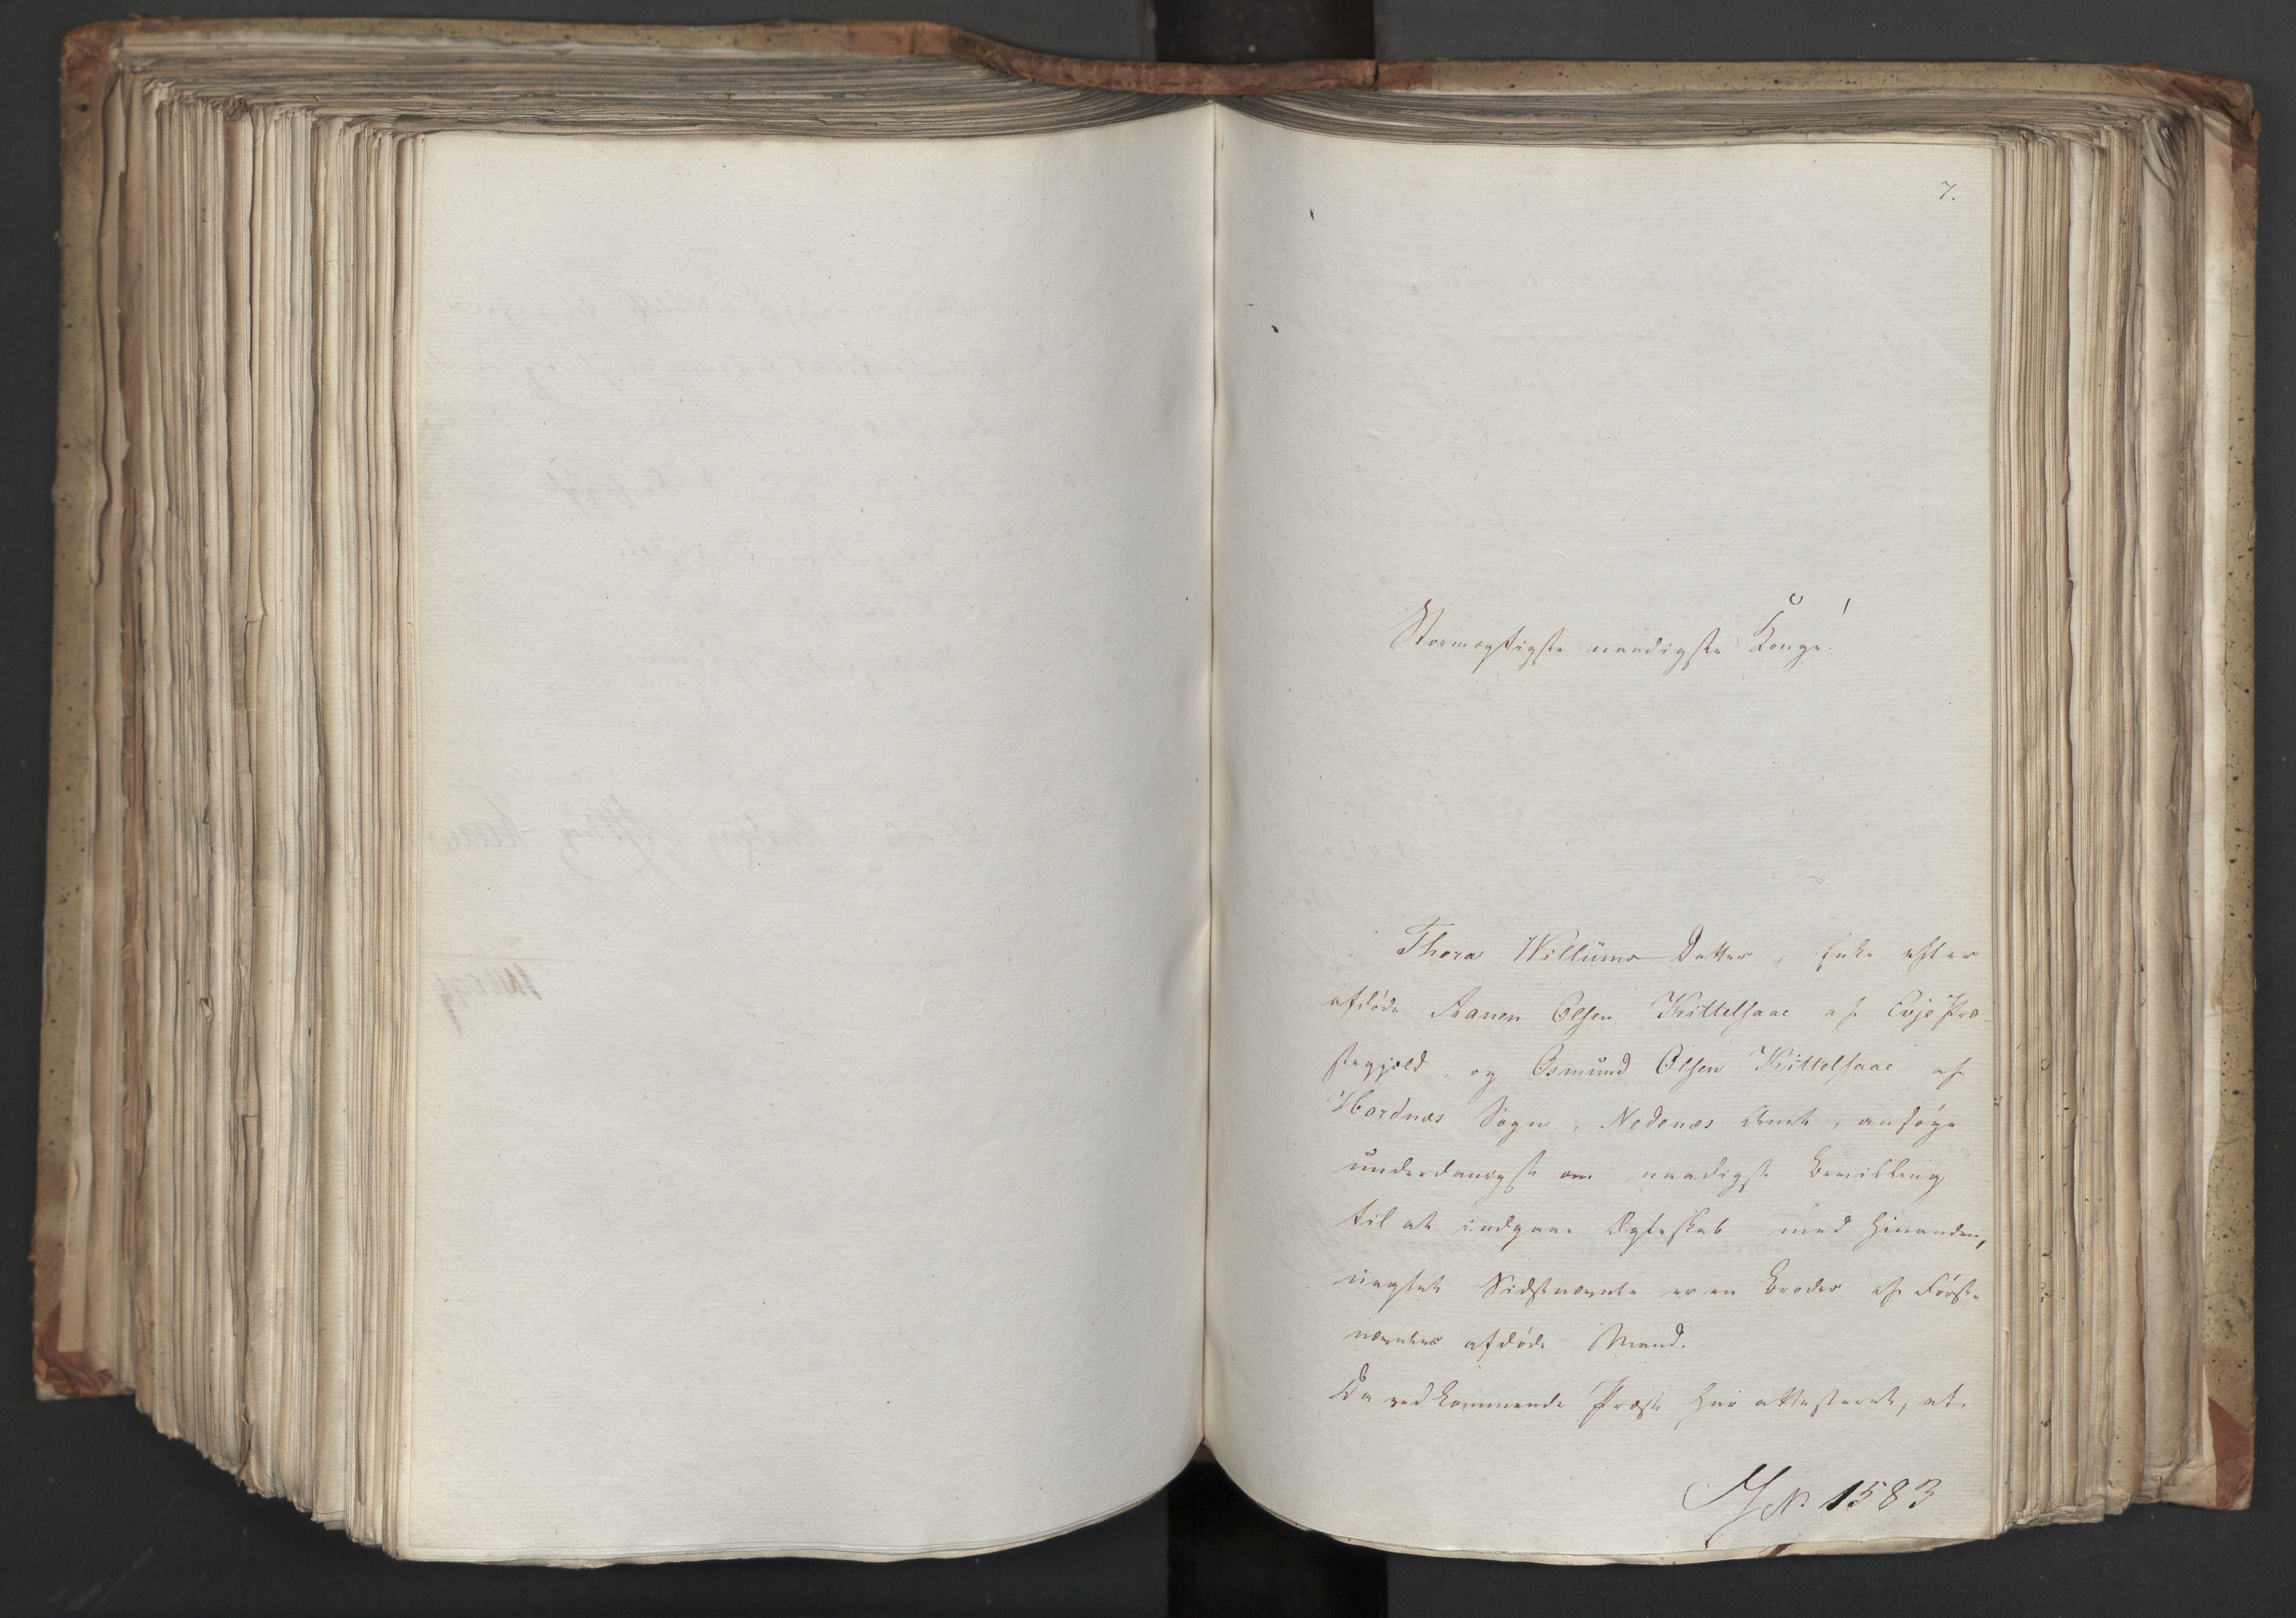 7.
Stormægtigste naadigste Konge!
Thora Willums Datter, Enke efter
afdøde Aanen Olsen Kittelsaae af Evje Præ-
stegjeld og Osmund Olsen Kittelsaae af
Hordnæs Sogn, Nedenæs Amt, ansøge
underdanigst om naadigst Bevilling
til at indgaae Ægteskab med hinanden,
uagtet Sidstnævnte er en Broder af Første
nævntes afdøde Mand.
Da vedkommende Præst har attesteret, at
No. 1583